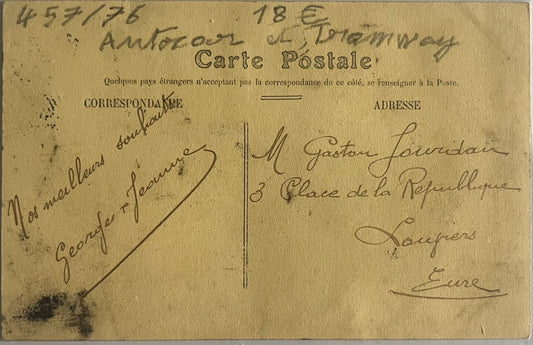 457/76 18 €
Autocar et Tramway
Carte Postale
Quelques pays étrangers n'acceptant pas la correspondance de ce côté, se renseigner à la Poste.
CORRESPONDANCE
ADRESSE
Nos meilleurs souhaits
Georges & Jeanne
M Gaston Jourdain
3 Place de la République
Louviers
Eure